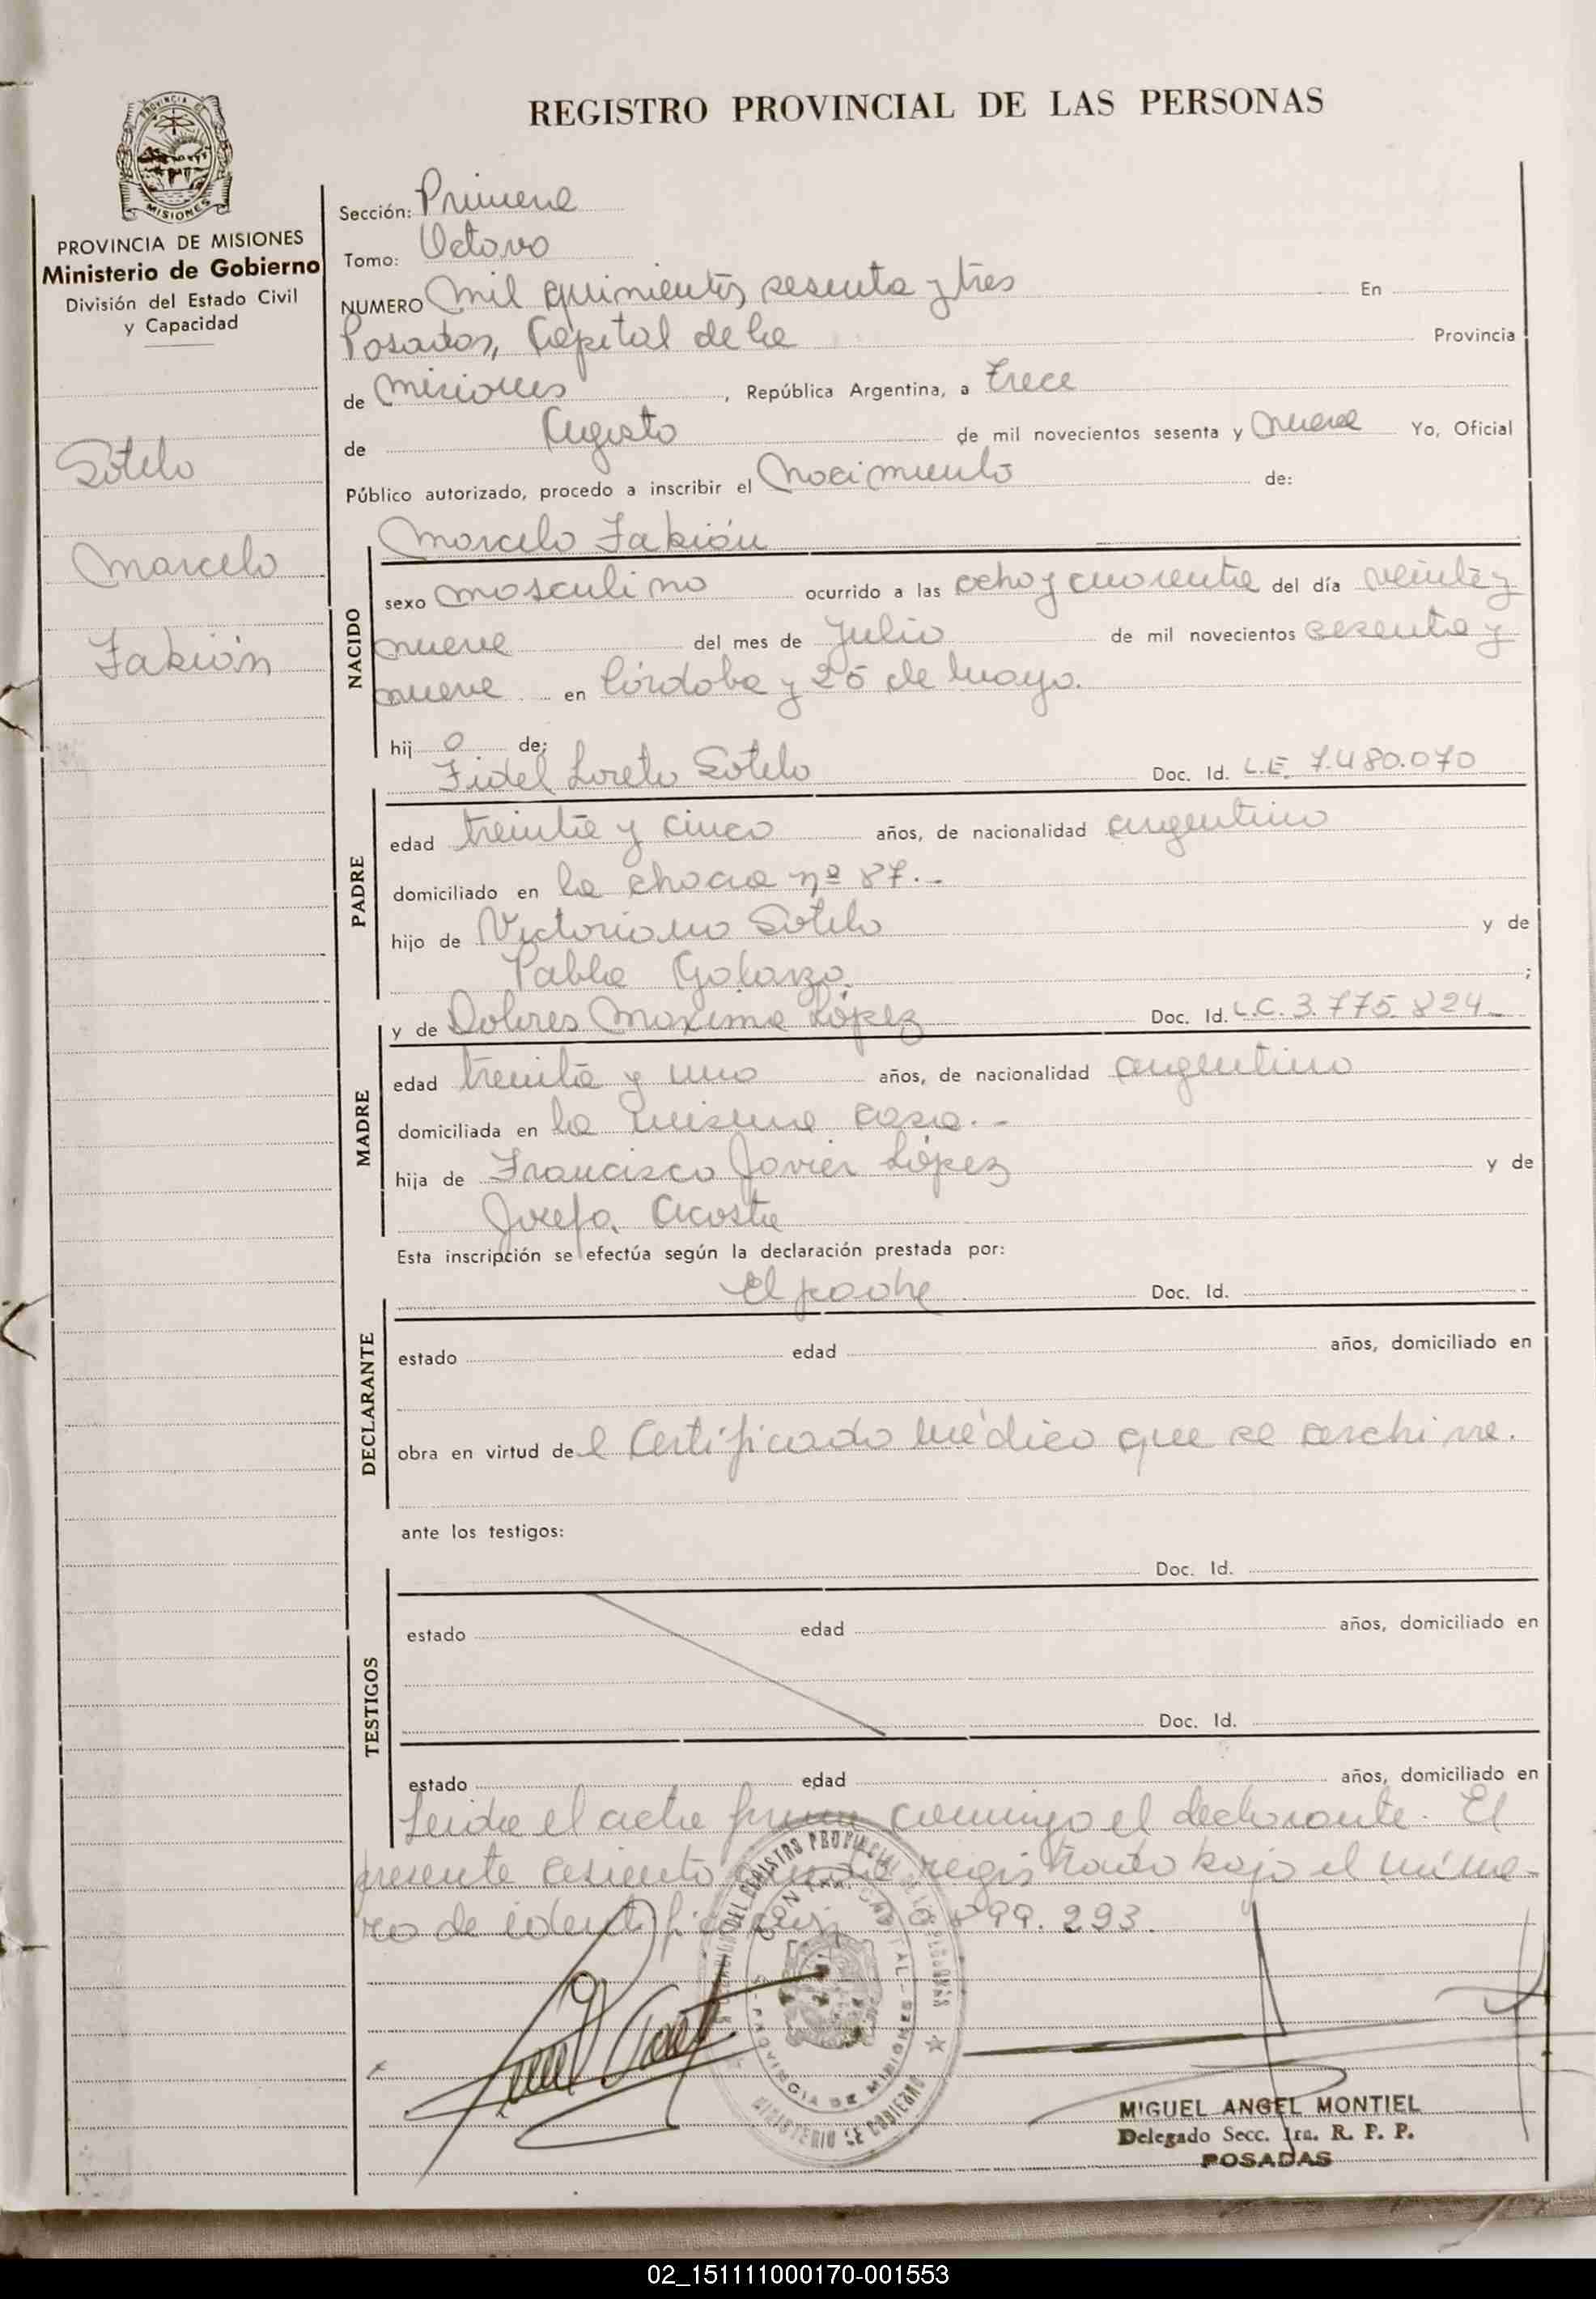 REGISTRO PROVINCIAL DE LAS PERSONAS
MISIONES
PROVINCIA DE MISIONES
Ministerio de Gobierno
División del Estado Civil
y Capacidad
Sotelo
Marcelo
Fabián
Sección: Primera
Tomo: Octavo
NUMERO Mil quinientos sesenta y tres En
Posadas, Capital de la Provincia
de Misiones, República Argentina, a trece
de Agosto de mil novecientos sesenta y nueve Yo, Oficial
Público autorizado, procedo a inscribir el Nacimiento de:
NACIDO
Marcelo Fabián
sexo masculino ocurrido a las ocho y cuarenta del día veinte y
nueve del mes de Julio de mil novecientos sesenta y
nueve en Córdoba y 25 de Mayo.
hij o de:
PADRE
Fidel Loreto Sotelo Doc. Id. L.E. 7.480.070
edad treinta y cinco años, de nacionalidad argentino
domiciliado en la chacra nº 87.-
hijo de Victoriano Sotelo y de
Pabla Galarza. ;
MADRE
y de Dolores Maxima López Doc. Id. L.C. 3.775.824
edad treinta y uno años, de nacionalidad argentina
domiciliada en la misma casa.-
hija de Francisco Javier López y de
Josefa Acosta
Esta inscripción se efectúa según la declaración prestada por:
DECLARANTE
El padre Doc. Id.
estado edad años, domiciliado en
obra en virtud del Certificado médico que se archiva.
ante los testigos:
TESTIGOS
Doc. Id.
estado edad años, domiciliado en
Doc. Id.
estado edad años, domiciliado en
Leida el acta firma conmigo el declarante. El
presente asiento queda registrado bajo el núme-
ro de identificación 20.899.293.
MINISTERIO DE GOBIERNO
PROVINCIA DE MISIONES
MIGUEL ANGEL MONTIEL
Delegado Secc. 1ra. R. P. P.
POSADAS
02_151111000170-001553